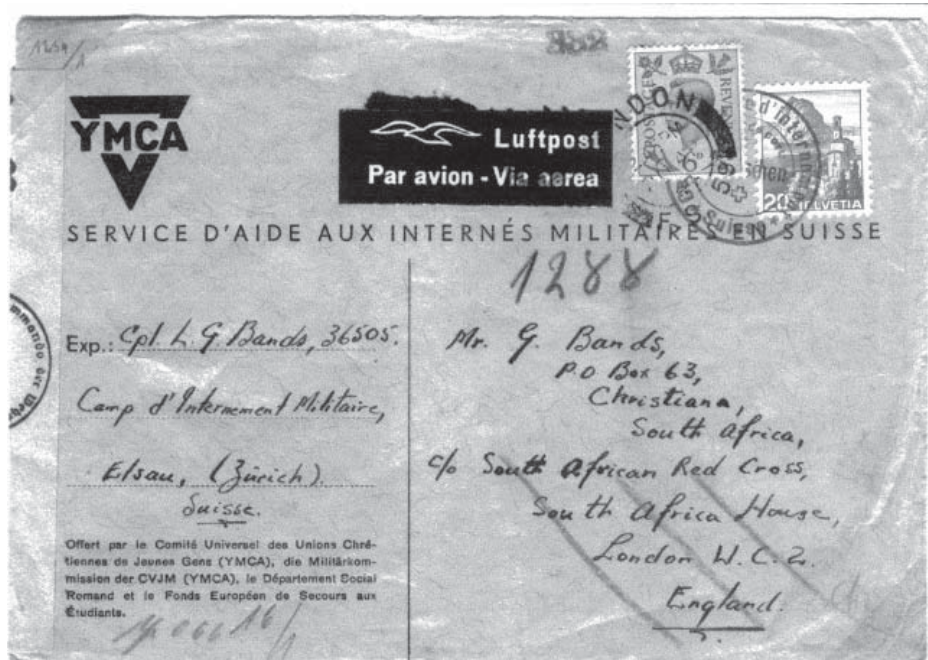 1259/1
YMCA
Luftpost
Par avion - Via aerea
POSTAGE REVENUE
6D
LONDON
20 HELVETIA
Suisse
SERVICE D'AIDE AUX INTERNÉS MILITAIRES EN SUISSE
1288
Exp.: Cpl. L. G. Bands, 36505.
Camp d'Internement Militaire,
Elsau, (Zürich).
Suisse.
Offert par le Comité Universel des Unions Chré-
tiennes de Jeunes Gens (YMCA), die Militärkom-
mission der CVJM (YMCA), le Département Social
Romand et le Fonds Européen de Secours aux
Étudiants.
Mr. G. Bands,
P.O Box 63,
Christiana,
South Africa,
c/o South African Red Cross,
South Africa House,
London W.C.2.
England.